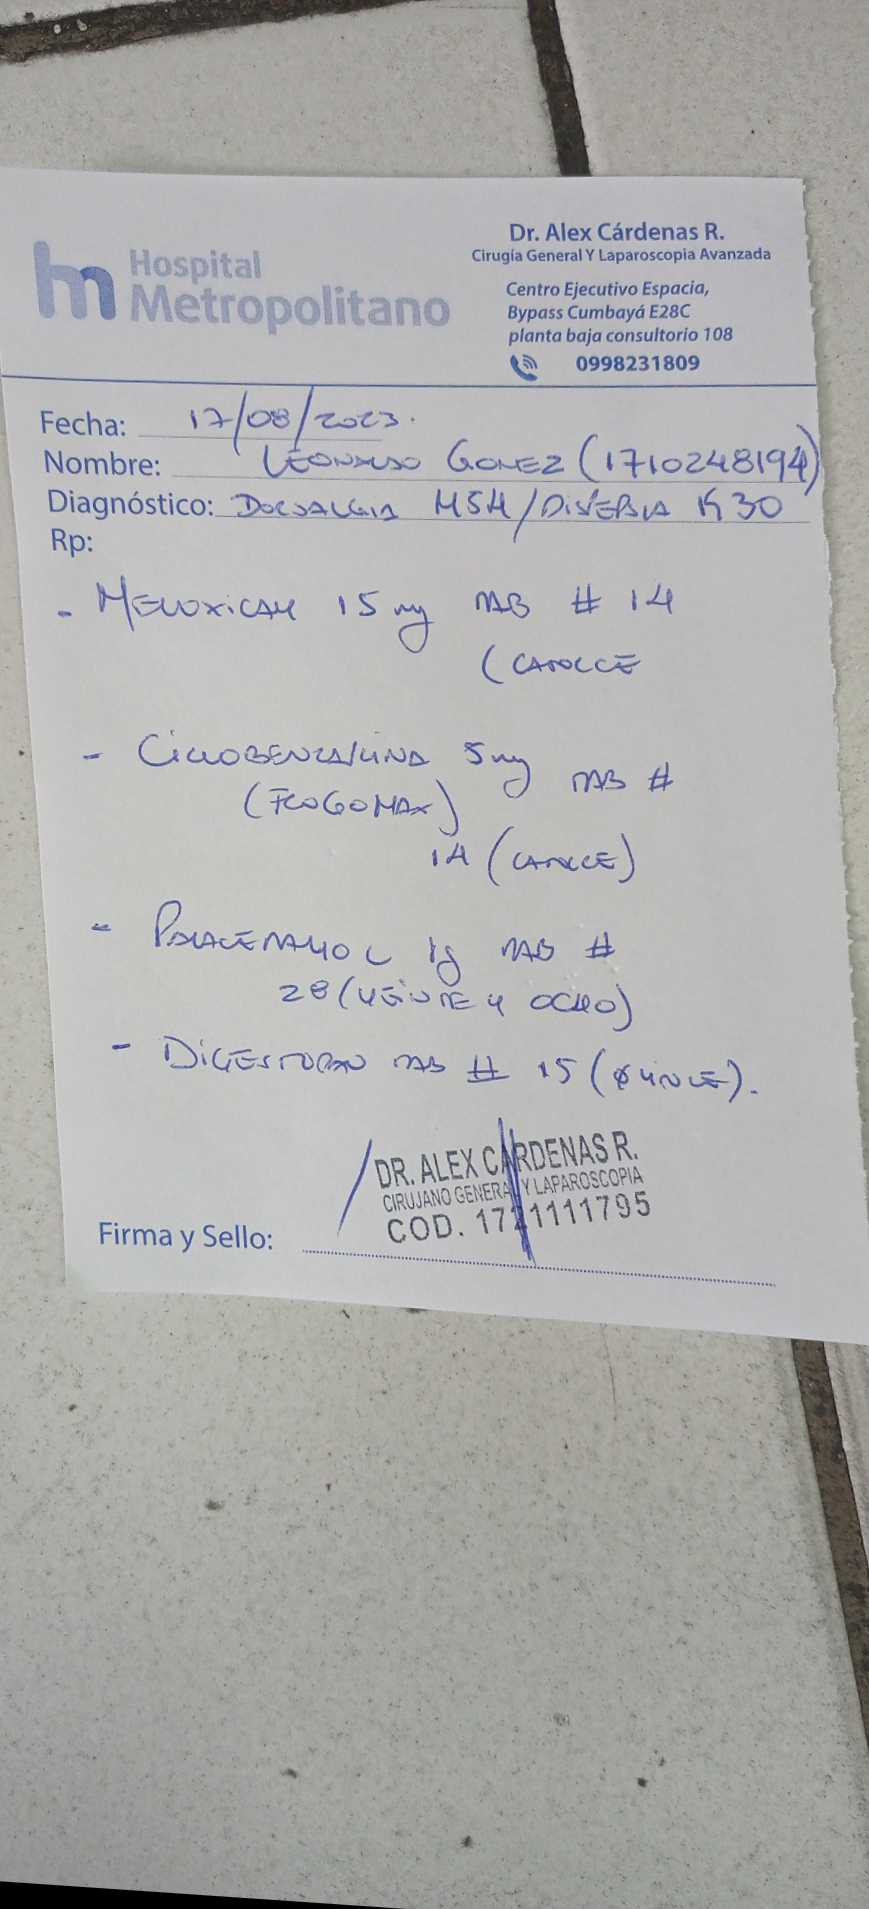 hm Hospital
Metropolitano
Dr. Alex Cárdenas R.
Cirugía General Y Laparoscopia Avanzada
Centro Ejecutivo Espacia,
Bypass Cumbayá E28C
planta baja consultorio 108
0998231809
Fecha: 17/08/2023.
Nombre: LEONARDO GOMEZ (1710248194)
Diagnóstico: DORSALGIA M54/DISPEPSIA K30
Rp:
- MELOXICAM 15 mg TAB # 14
(CATORCE
- CICLOBENZAPRINA 5 mg TAB #
(FLOGOMAX)
14 (CATORCE)
- PARACETAMOL 1g TAB #
28 (VEINTE Y OCHO)
- DIGESTOPAN TAB # 15 (QUINCE).
DR. ALEX CÁRDENAS R.
CIRUJANO GENERAL Y LAPAROSCOPIA
COD. 1721111795
Firma y Sello: